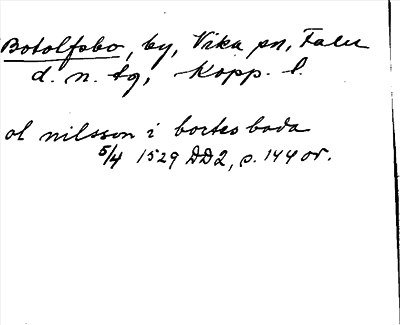 Botolfsbo, by, Vika sn, Falu
d. n. tg, Kopp. l.
ol nilsson i bortes boda
5/4 1529 DD2, s. 144 or.